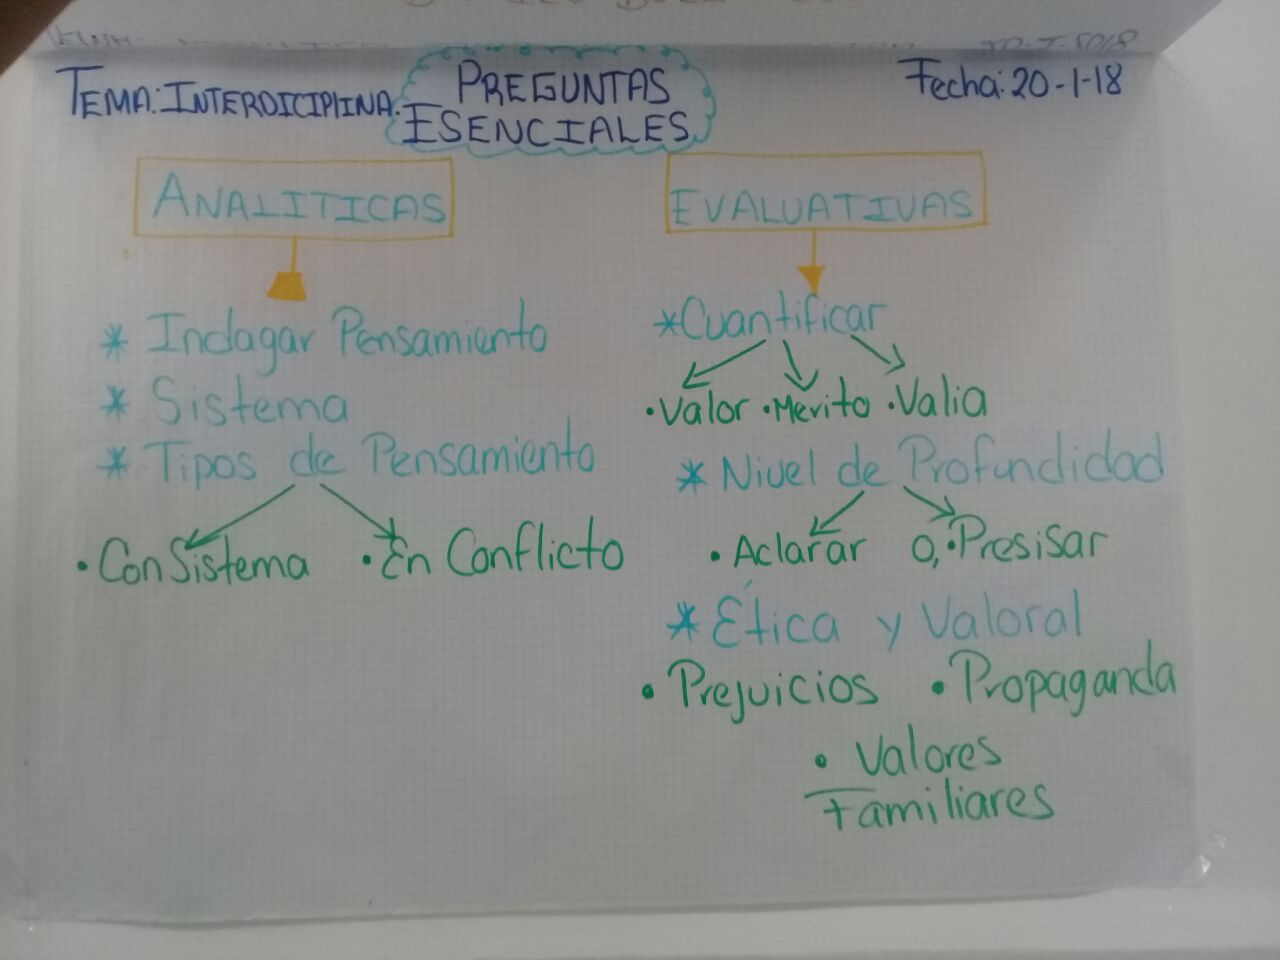 TEMA: INTERDICIPLINA.
PREGUNTAS
ESENCIALES
Fecha: 20-1-18
ANALITICAS
* Indagar Pensamiento
* Sistema
* Tipos de Pensamiento
• Con Sistema • En Conflicto
EVALUATIVAS
* Cuantificar
• Valor • Merito • Valia
* Nivel de Profundidad
• Aclarar o, • Presisar
* Ética y Valoral
• Prejuicios • Propaganda
• Valores
Familiares